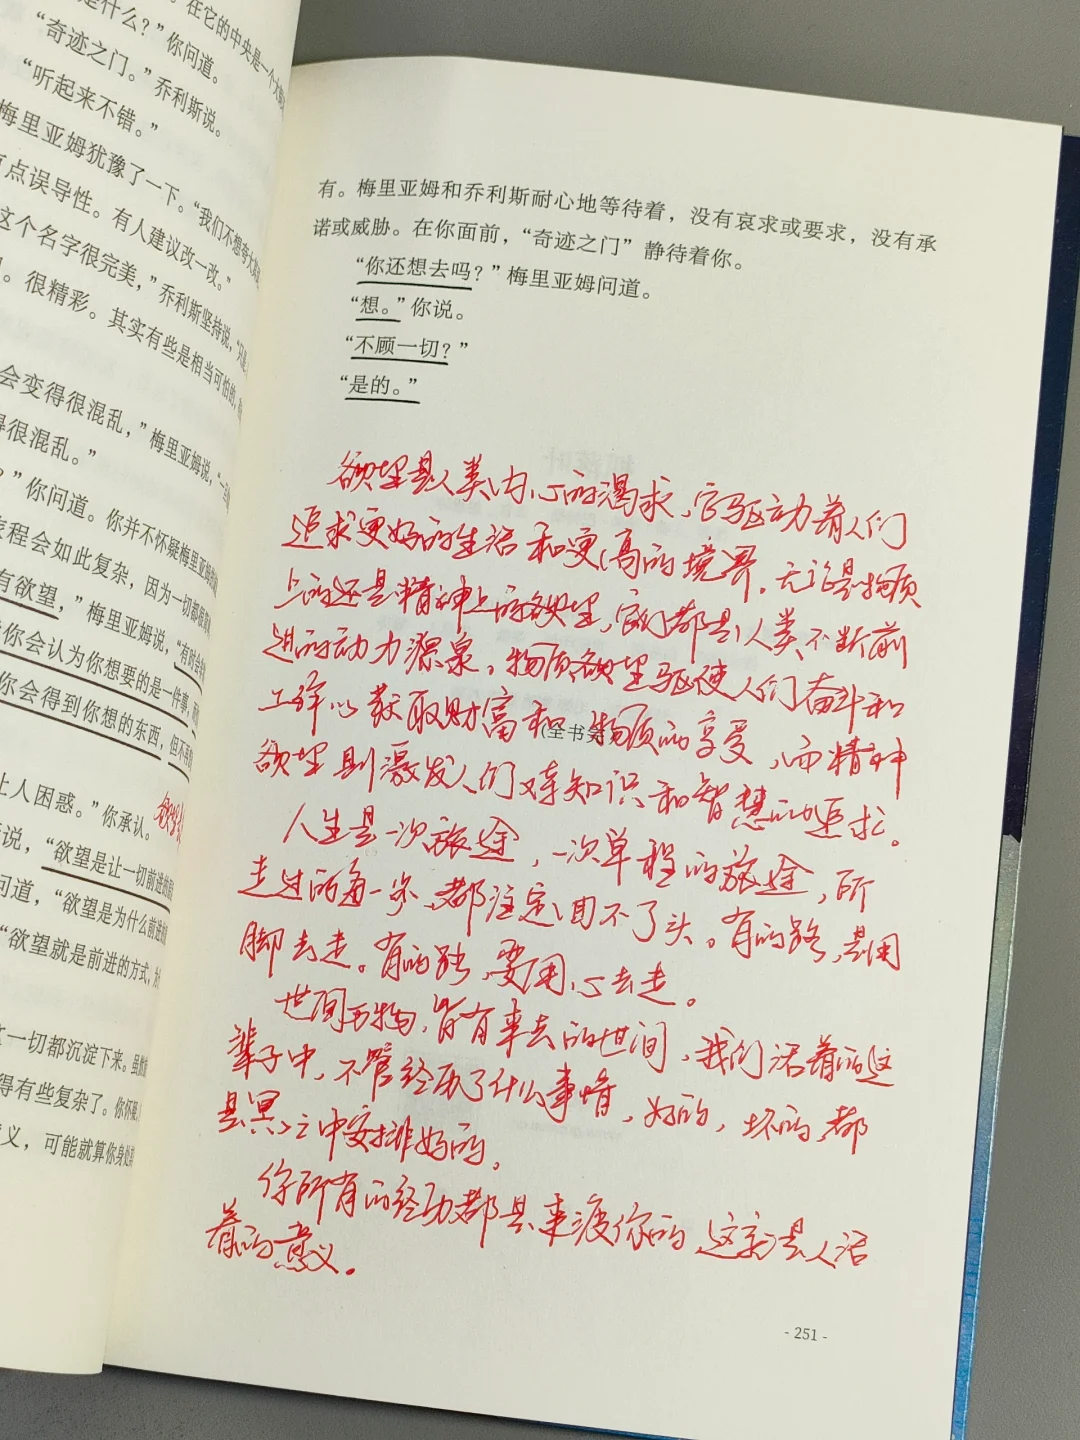 是什么？”你问道。
“奇迹之门。”乔利斯说。
“听起来不错。”
梅里亚姆犹豫了一下。“我们不想夸大
点误导性。有人建议改一改。”
这个名字很完美，”乔利斯坚持说，“只是
。很精彩。其实有些是相当可怕的，
会变得很混乱，”梅里亚姆说，“一
得很混乱。”
？”你问道。你并不怀疑梅里亚姆
旅程会如此复杂，因为一切都
有欲望，”梅里亚姆说，“有时会
你会认为你想要的是一件事，
你会得到你想的东西，但不
让人困惑。”你承认。
说，“欲望是让一切前进的
问道，“欲望是为什么前进
“欲望就是前进的方式，
一切都沉淀下来。虽
得有些复杂了。你怀疑，
义，可能就算你身处
有。梅里亚姆和乔利斯耐心地等待着，没有哀求或要求，没有承
诺或威胁。在你面前，“奇迹之门”静待着你。
“你还想去吗？”梅里亚姆问道。
“想。”你说。
“不顾一切？”
“是的。”
欲望是人类内心的渴求，它驱动着人们
追求更好的生活和更高的境界。无论是物质
上的还是精神上的欲望，它们都是人类不断前
进的动力源泉。物质欲望驱使人们奋斗和
工作以获取财富和物质的享受，而精神
(全书完)
欲望则激发人们对知识和智慧的追求。
人生是一次旅途，一次单程的旅途，所
走过的每一步，都注定回不了头。有的路，是用
脚去走。有的路，要用心去走。
世间万物，皆有来去的世间，我们活着的这
辈子中，不管经历了什么事情，好的，坏的，都
是冥冥之中安排好的。
你所有的经历都是来渡你的，这就是人活
着的意义。
- 251 -